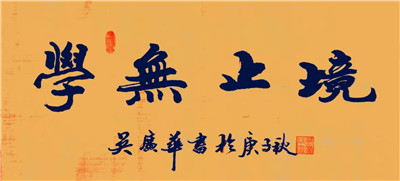 學無止境
吴廣華書於庚子秋